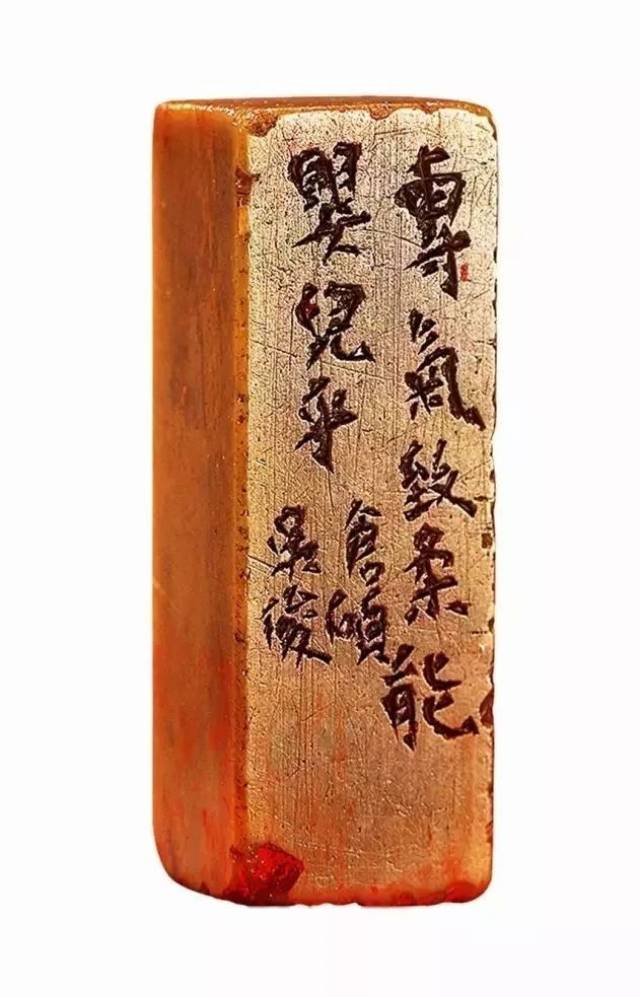 專氣致柔能
嬰兒乎
倉碩
吳俊